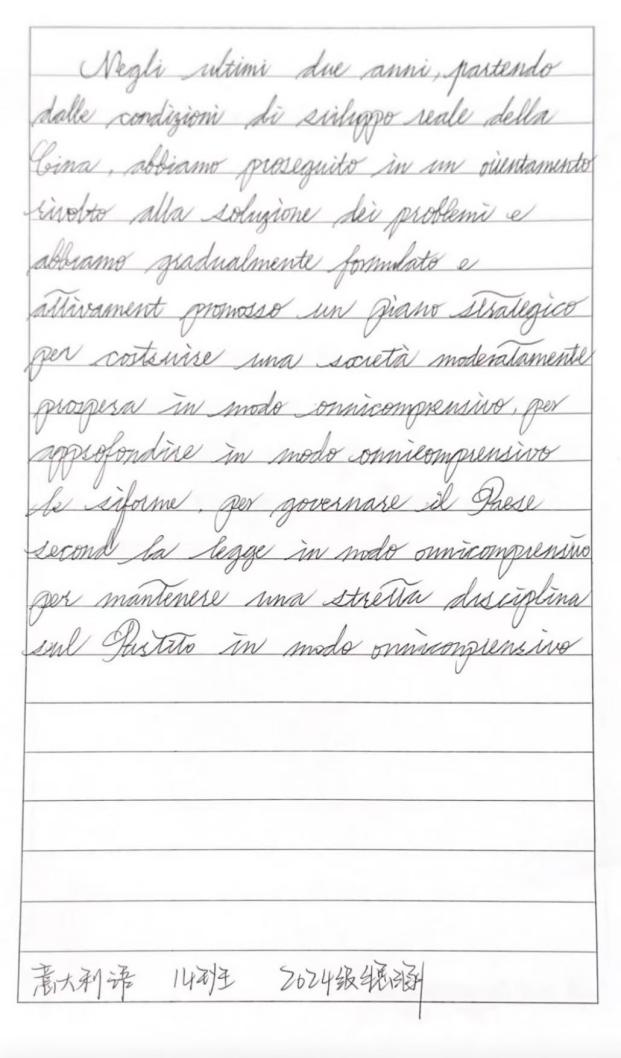 Negli ultimi due anni, partendo
dalle condizioni di sviluppo reale della
Cina, abbiamo proseguito in un orientamento
rivolto alla soluzione dei problemi e
abbiamo gradualmente formulato e
attivament promosso un piano strategico
per costruire una società moderatamente
prospera in modo onnicomprensivo, per
approfondire in modo onnicomprensivo
le riforme, per governare il Paese
second la legge in modo onnicomprensivo
per mantenere una stretta disciplina
sul Partito in modo onniconprensivo
意大利语 14班 2024级